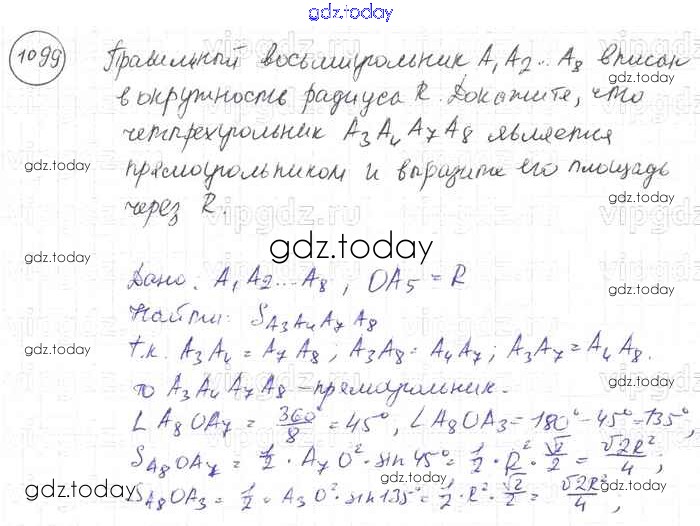 gdz.today
1099 Правильный восьмиугольник A₁A₂...A₈ вписан
в окружность радиуса R. Докажите, что
четырехугольник A₃A₄A₇A₈ является
прямоугольником и выразите его площадь
через R.
gdz.today
Дано: A₁A₂...A₈; OA₅ = R
Найти: S A₃A₄A₇A₈
т.к. A₃A₄ = A₇A₈; A₃A₈ = A₄A₇; A₃A₇ = A₄A₈.
то A₃A₄A₇A₈ - прямоугольник.
∠A₈OA₇ = 360°/8 = 45°, ∠A₈OA₃ = 180° - 45° = 135°,
S A₈OA₇ = 1/2 · A₇O² · sin 45° = 1/2 · R² · √2/2 = √2R²/4;
S A₈OA₃ = 1/2 · A₃O² · sin 135° = 1/2 · R² · √2/2 = √2R²/4;